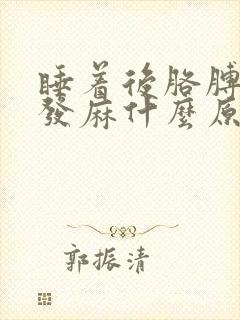 睡着後胳膊
發麻什麼原
郭振清